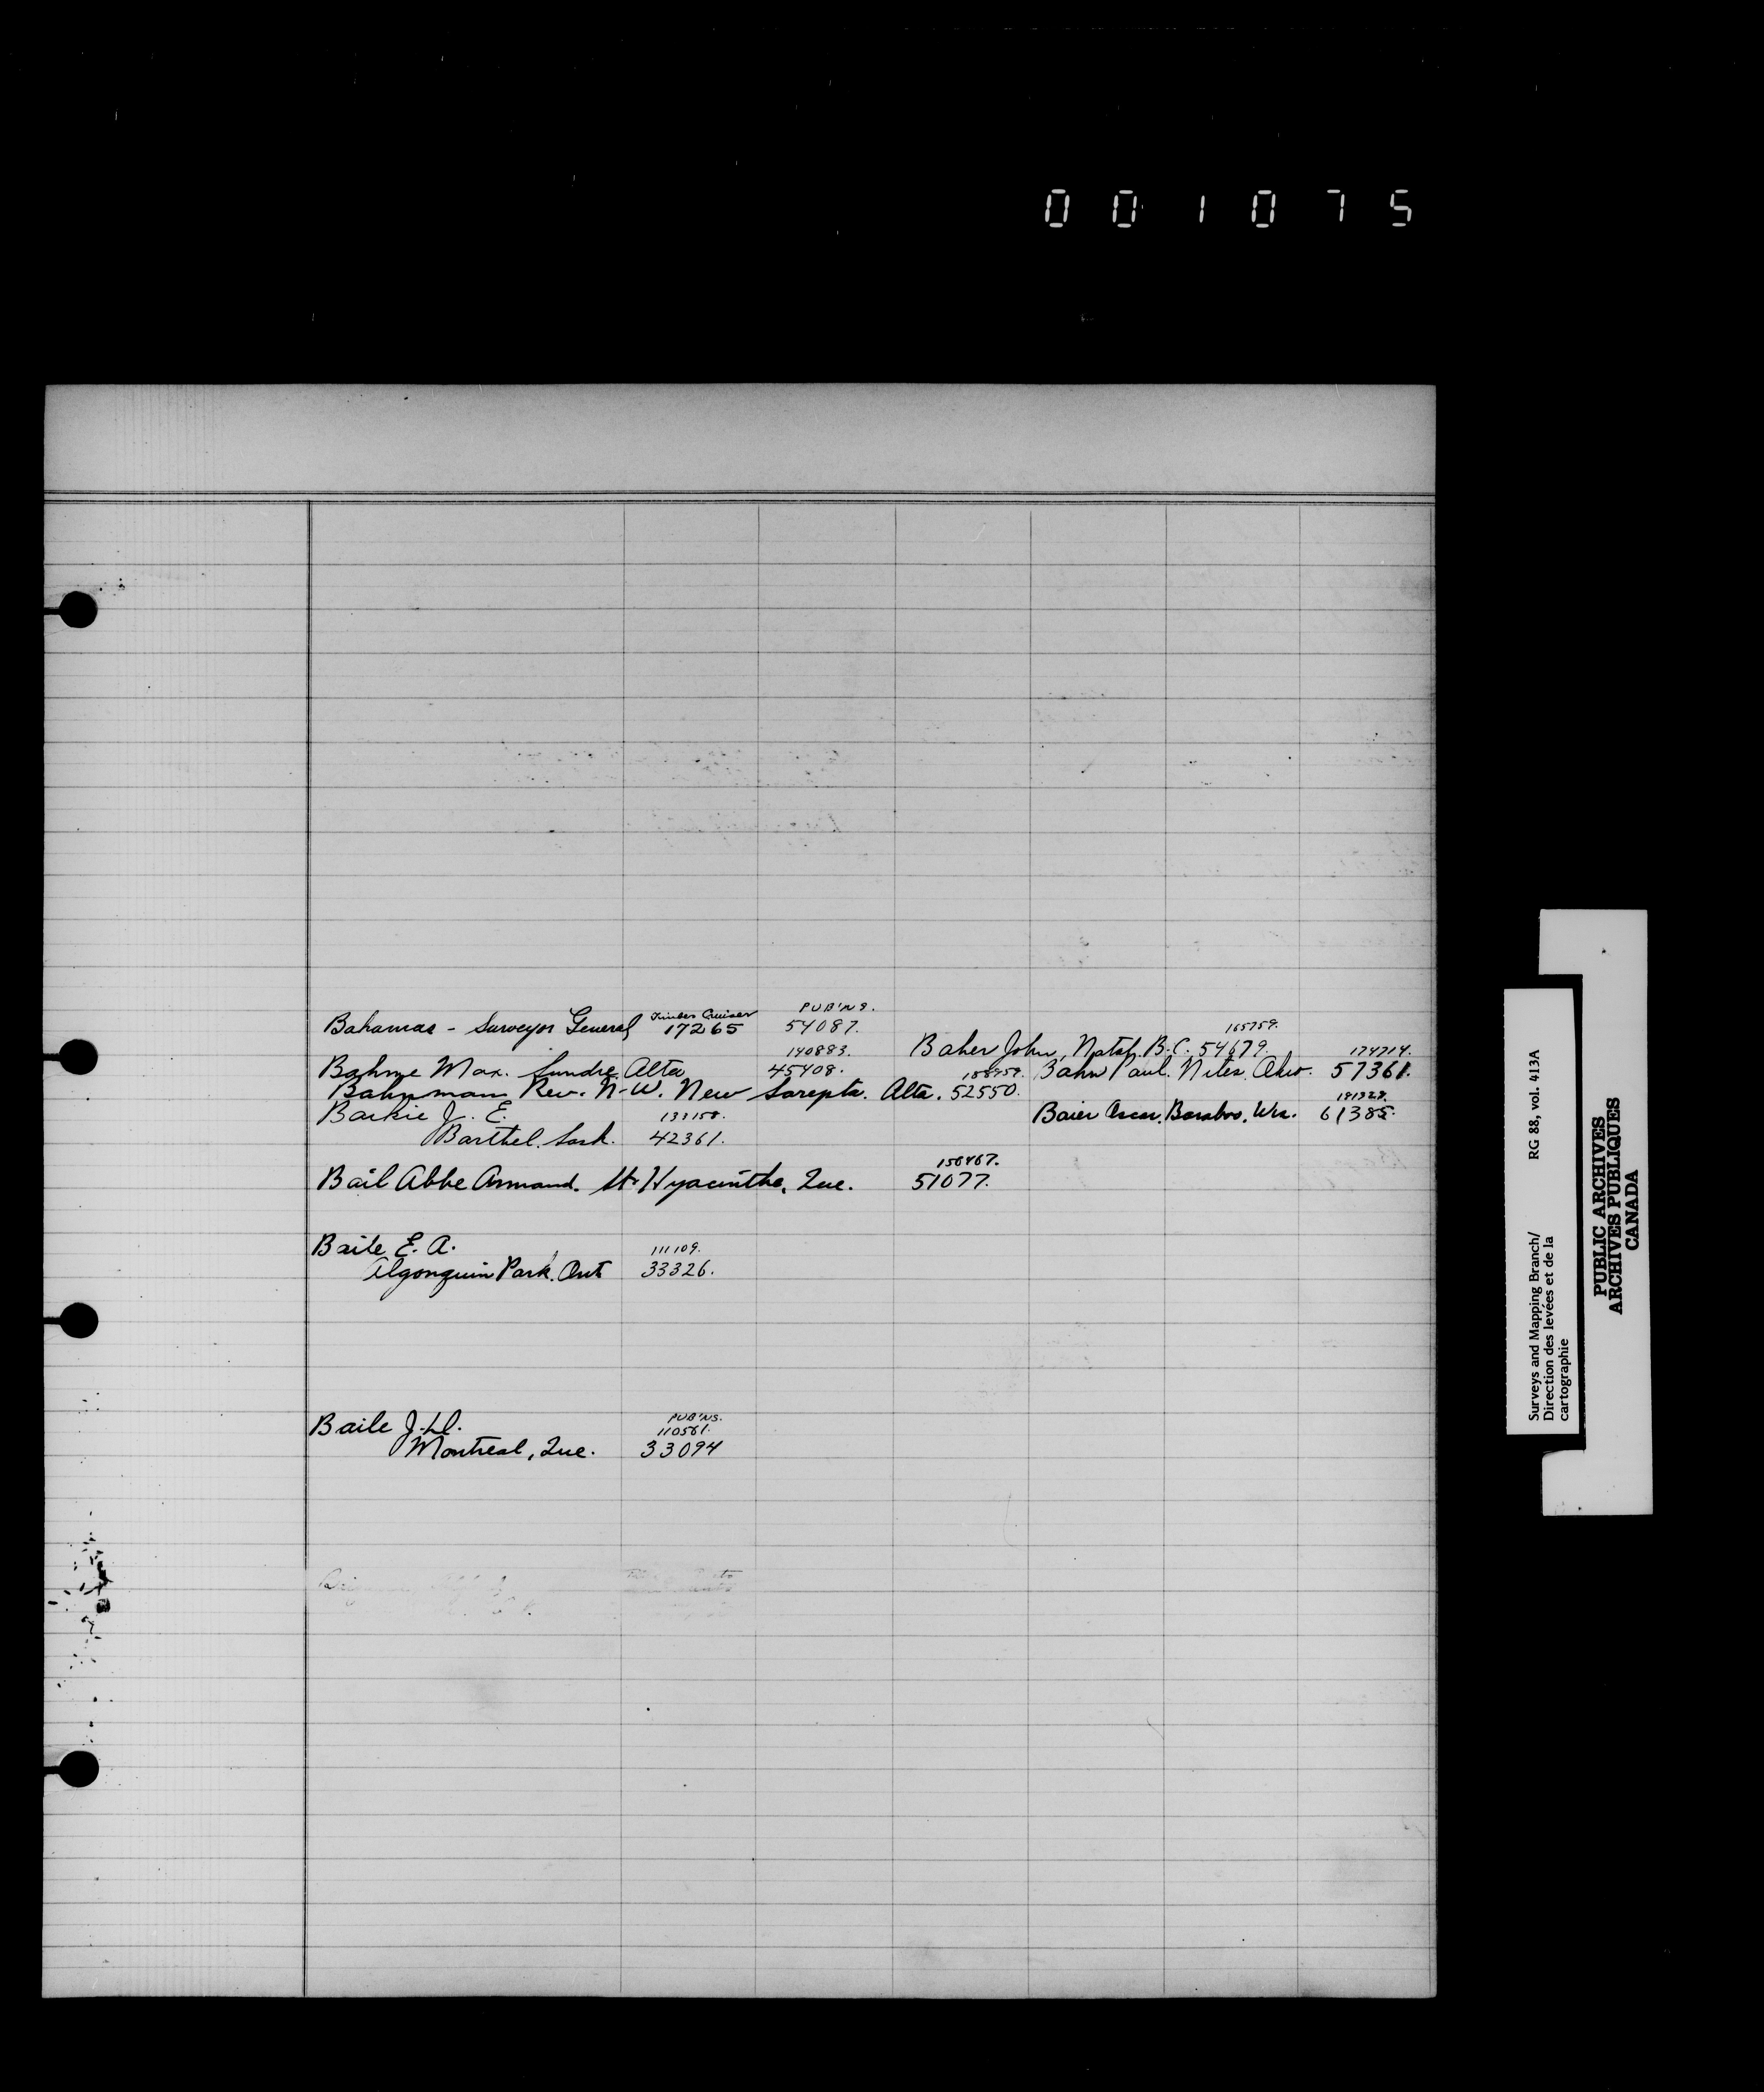 001075
Timber Cruiser PUB'NS.
Bahamas - Surveyor General 17265 54087.
165759.
Baher John, Natal. B.C. 54679.
140883. 174714.
Bahme Max. Sundre Alta 45408. Bahn Paul. Niles Ohio. 57361.
158959.
Bahnman Rev. N-W. New Sarepta. Alta. 52550.
191328.
Baikie J. E. 133158. Baier Oscar, Baraboo, Wis. 61385.
Barthel. Sask. 42361.
156467.
Bail Abbe Armand. St. Hyacinthe, Que. 51077.
Baile E. A. 111109.
Algonquin Park. Ont 33326.
PUB'NS.
Baile J. 110561.
Montreal, Que. 33094
RG 88, vol. 413A
Surveys and Mapping Branch/
Direction des levées et de la
cartographie
PUBLIC ARCHIVES
ARCHIVES PUBLIQUES
CANADA